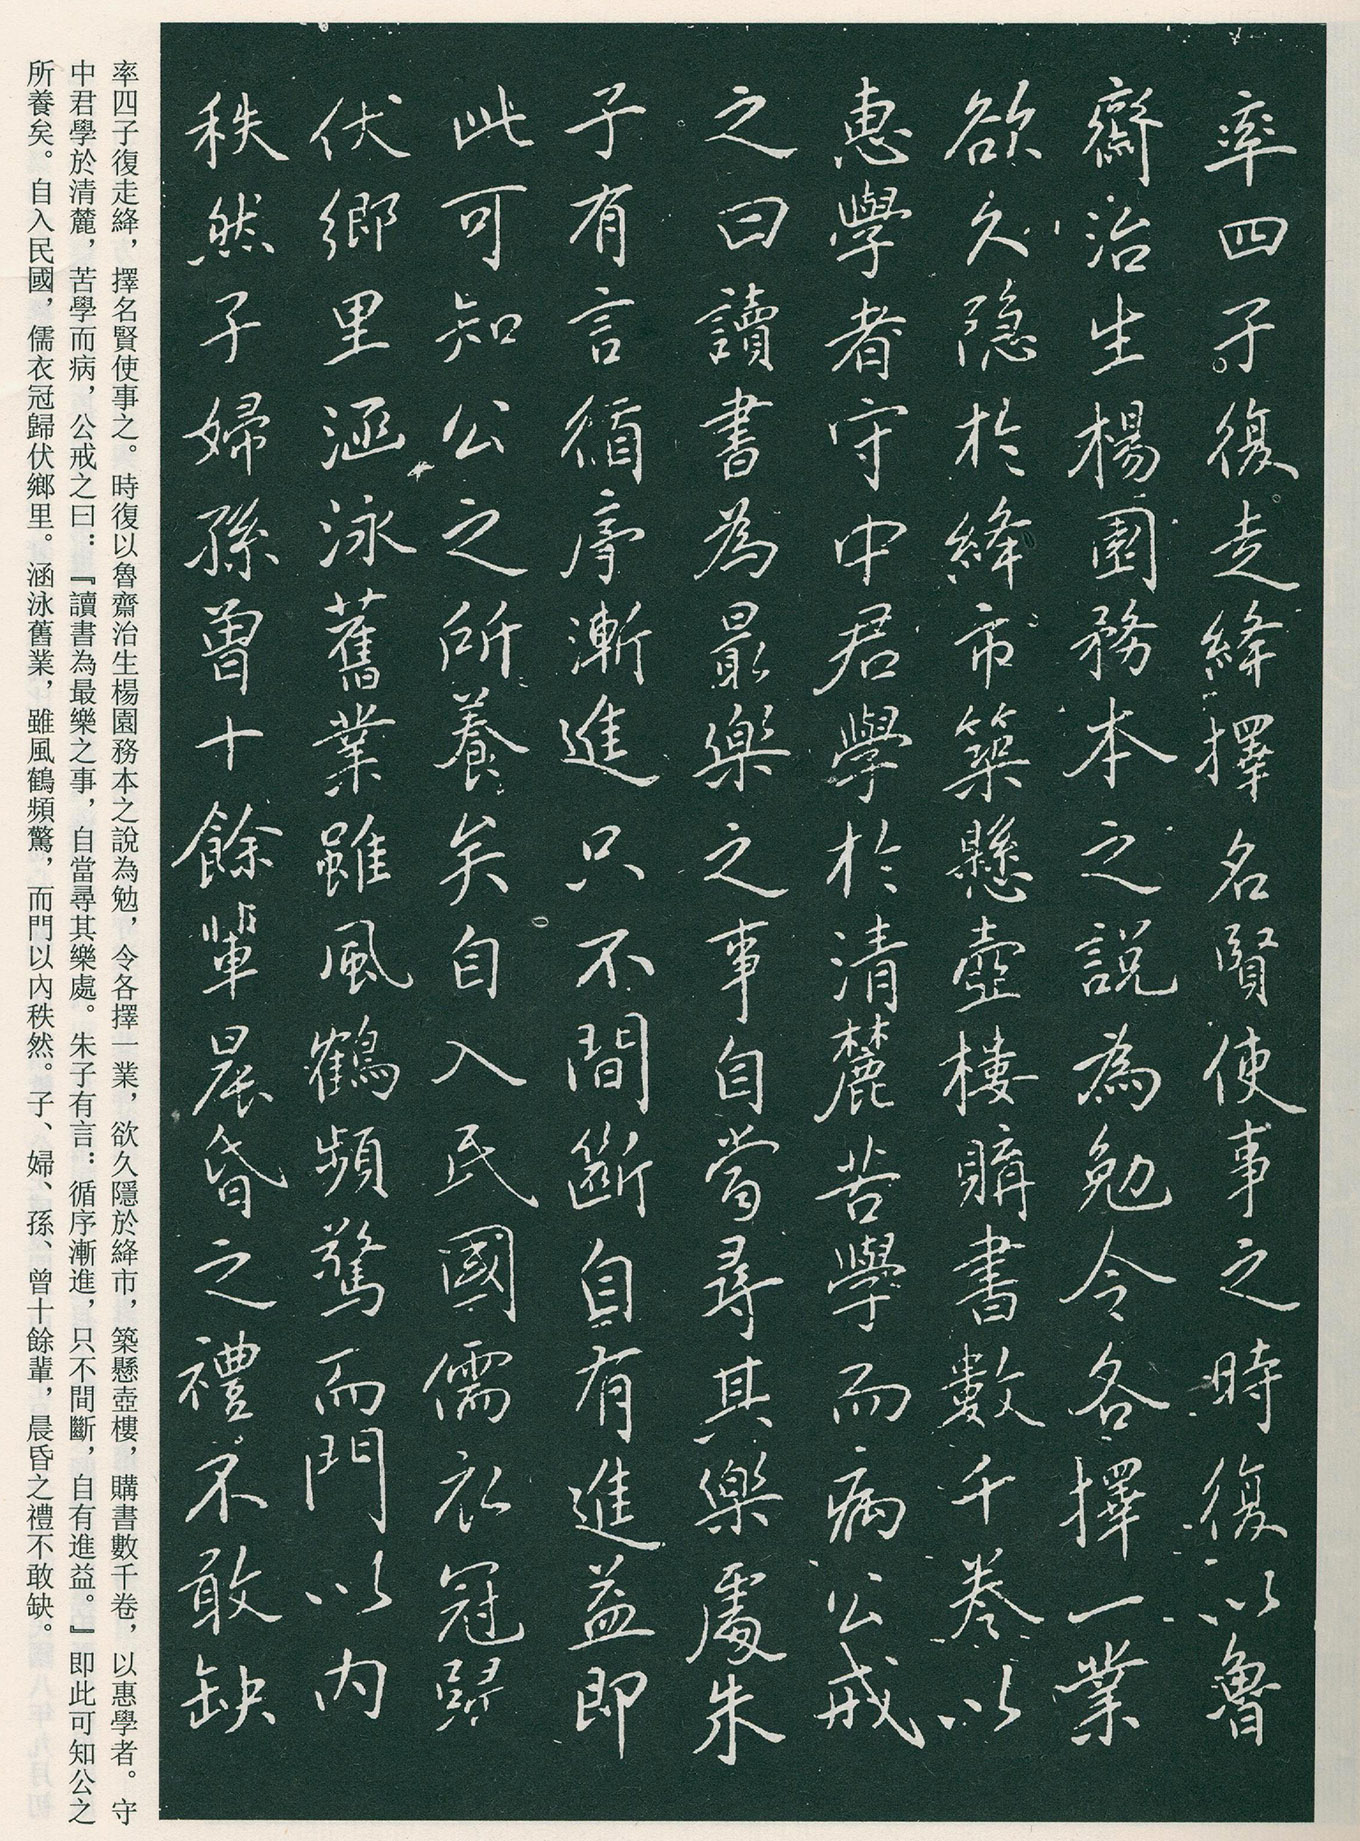 率四子復走絳擇名賢使事之時復以魯
齋治生楊園務本之說為勉令各擇一業
欲久隱於絳市築懸壺樓購書數千卷以
惠學者守中君學於清麓苦學而病公戒
之曰讀書為最樂之事自當尋其樂處朱
子有言循序漸進只不間斷自有進益即
此可知公之所養矣自入民國儒衣冠歸
伏鄉里涵泳舊業雖風鶴頻驚而門以內
秩然子婦孫曾十餘輩晨昏之禮不敢缺
率四子復走絳，擇名賢使事之。時復以魯齋治生楊園務本之說為勉，令各擇一業，欲久隱於絳市，築懸壺樓，購書數千卷，以惠學者。守
中君學於清麓，苦學而病，公戒之曰：『讀書為最樂之事，自當尋其樂處。朱子有言：循序漸進，只不間斷，自有進益。』即此可知公之
所養矣。自入民國，儒衣冠歸伏鄉里。涵泳舊業，雖風鶴頻驚，而門以內秩然。子、婦、孫、曾十餘輩，晨昏之禮不敢缺。